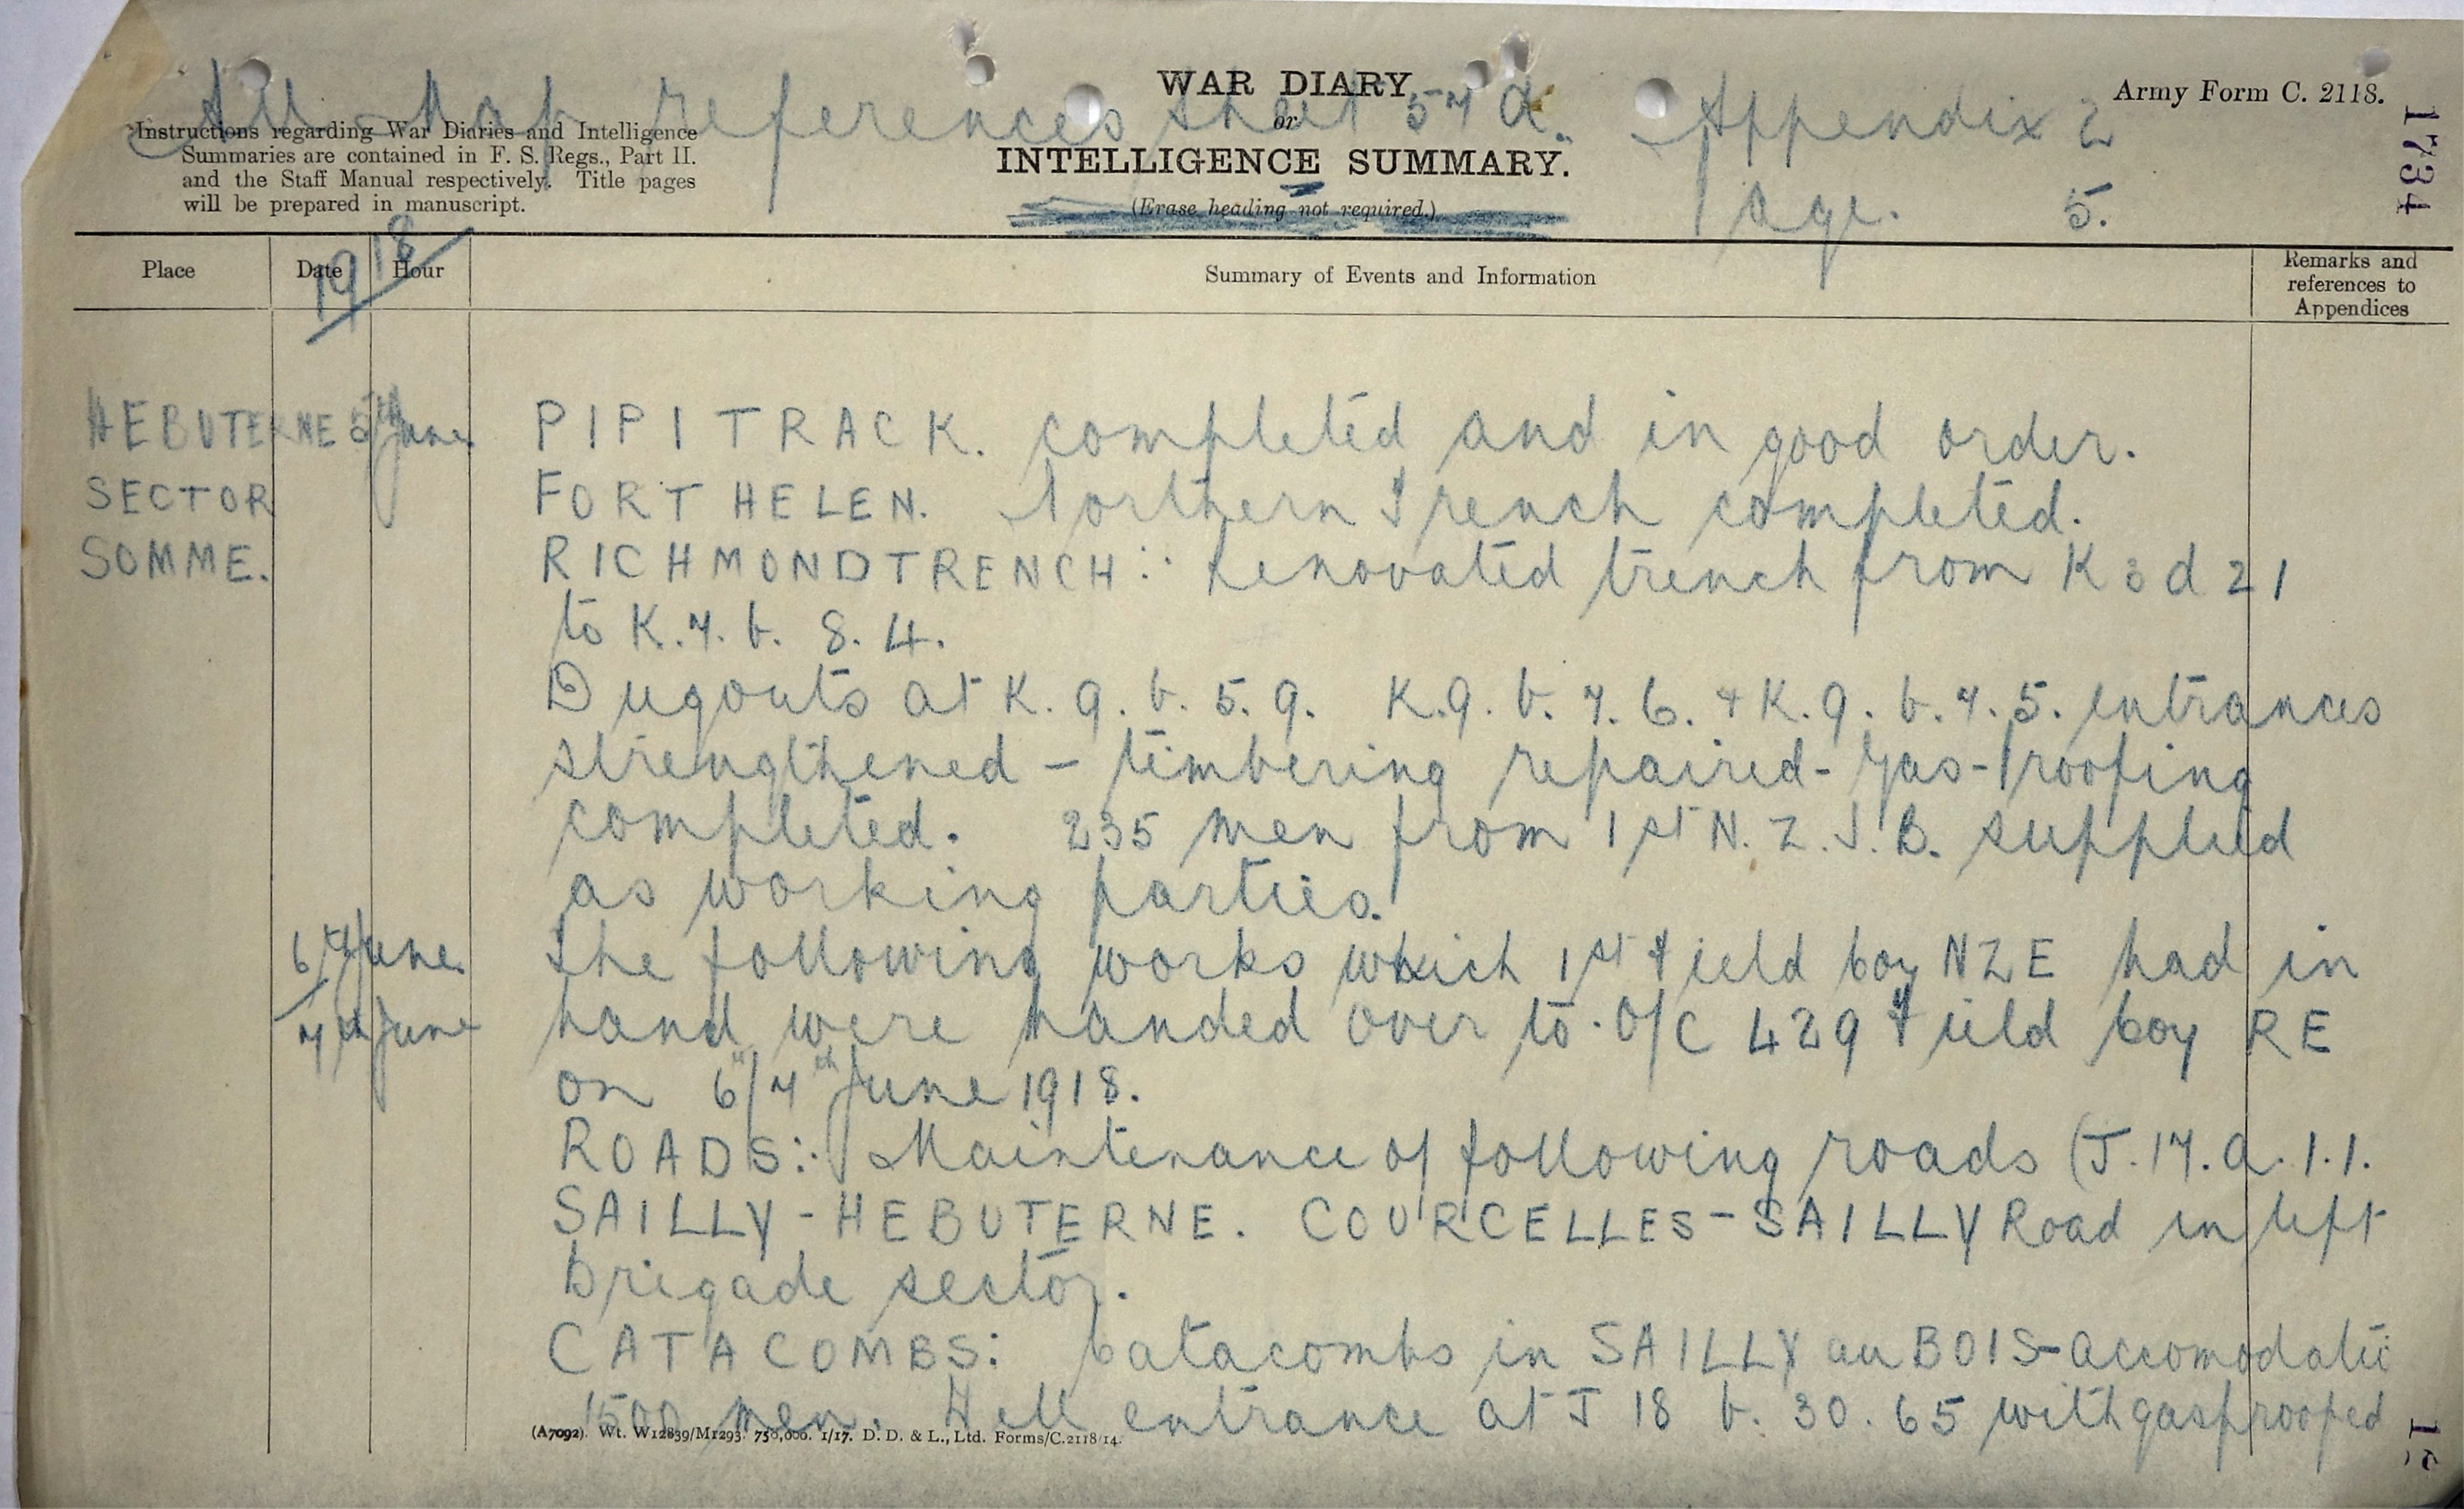 All Map references sheet 57 d. Appendix 2
Page. 5.
WAR DIARY
or
INTELLIGENCE SUMMARY.
(Erase heading not required.)
Army Form C. 2118.
1734
Instructions regarding War Diaries and Intelligence
Summaries are contained in F. S. Regs., Part II.
and the Staff Manual respectively. Title pages
will be prepared in manuscript.
1918
Place Date Hour Summary of Events and Information Remarks and references to Appendices
HEBUTERNE 5th June PIPI TRACK. completed and in good order.
SECTOR FORT HELEN. Northern Trench completed.
SOMME. RICHMOND TRENCH:- Renovated trench from K 3 d 2 1
to K.7. b. 8. 4.
Dugouts at K. 9. b. 5. 9. K.9. b. 7. 6. + K. 9. b. 7. 5. entrances
strengthened - timbering repaired - Gas-proofing
completed. 235 men from 1st N. Z. I. B. supplied
as working parties.
6th June The following works which 1st Field Coy NZE had in
7th June hand were handed over to O/C 429 Field Coy RE
on 6th/7th June 1918.
ROADS:- Maintenance of following roads (J. 17. a. 1. 1.
SAILLY - HEBUTERNE. COURCELLES - SAILLY Road in left
Brigade sector.
CATACOMBS: Catacombs in SAILLY au BOIS - accomodatio
1500 men. Well entrance at J 18 b. 30. 65 with gasproofed
(A7092). Wt. W12839/M1293. 750,000. 1/17. D. D. & L., Ltd. Forms/C.2118/14.